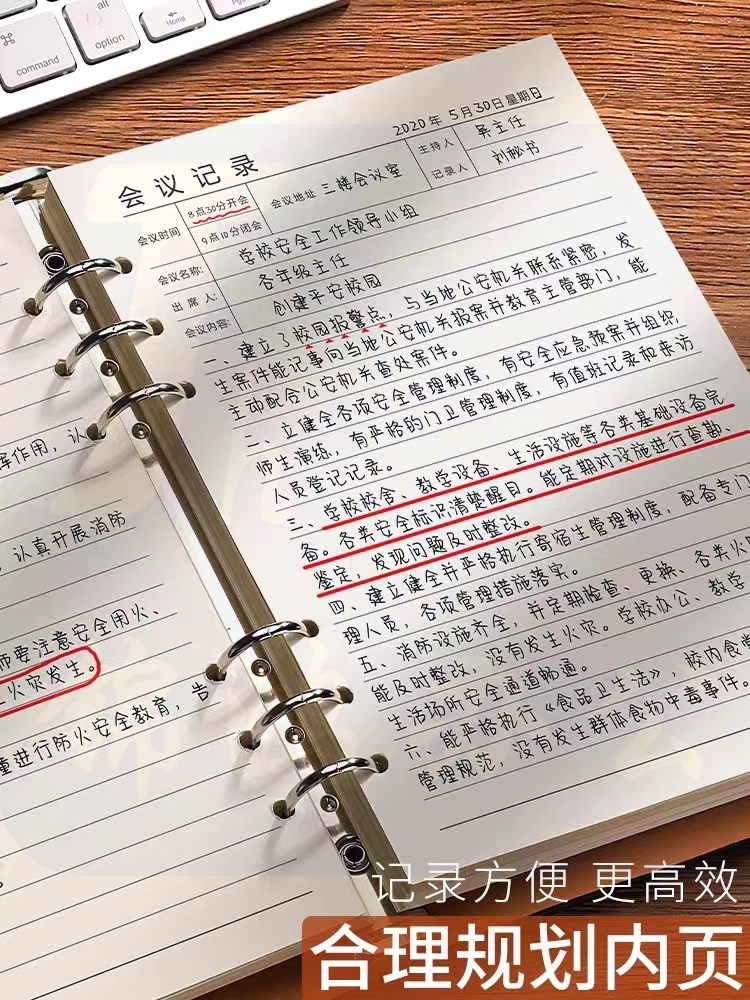 alt
option
command
Home
2020年 5月30日星期日
会议记录
会议时间
8点30分开会
9点10分闭会
会议地址
三楼会议室
主持人
吴主任
记录人
刘秘书
会议名称:
学校安全工作领导小组
出席人:
各年级主任
会议内容:
创建平安校园
一、建立了校园报警点，与当地公安机关联系紧密，发
生案件能记事向当地公安机关报案并教育主管部门，能
主动配合公安机关查处案件。
二、立健全各项安全管理制度，有安全应急预案并组织
师生演练，有严格的门卫管理制度，有值班记录和来访
人员登记记录。
三、学校校舍、教学设备、生活设施等各类基础设备完
备。各类安全标识清楚醒目。能定期对设施进行查勘、
鉴定，发现问题及时整改。
四、建立健全并严格执行寄宿生管理制度，配备专门
理人员，各项管理措施落实。
五、消防设施齐全，并定期检查、更换、各类火
能及时整改，没有发生火灾。学校办公、教学
生活场所安全通道畅通。
六、能严格执行《食品卫生法》，校内食堂
管理规范，没有发生群体食物中毒事件。
挥作用，认
，认真开展消防
师要注意安全用火、
火灾发生。
童进行防火安全教育，告
记录方便 更高效
合理规划内页